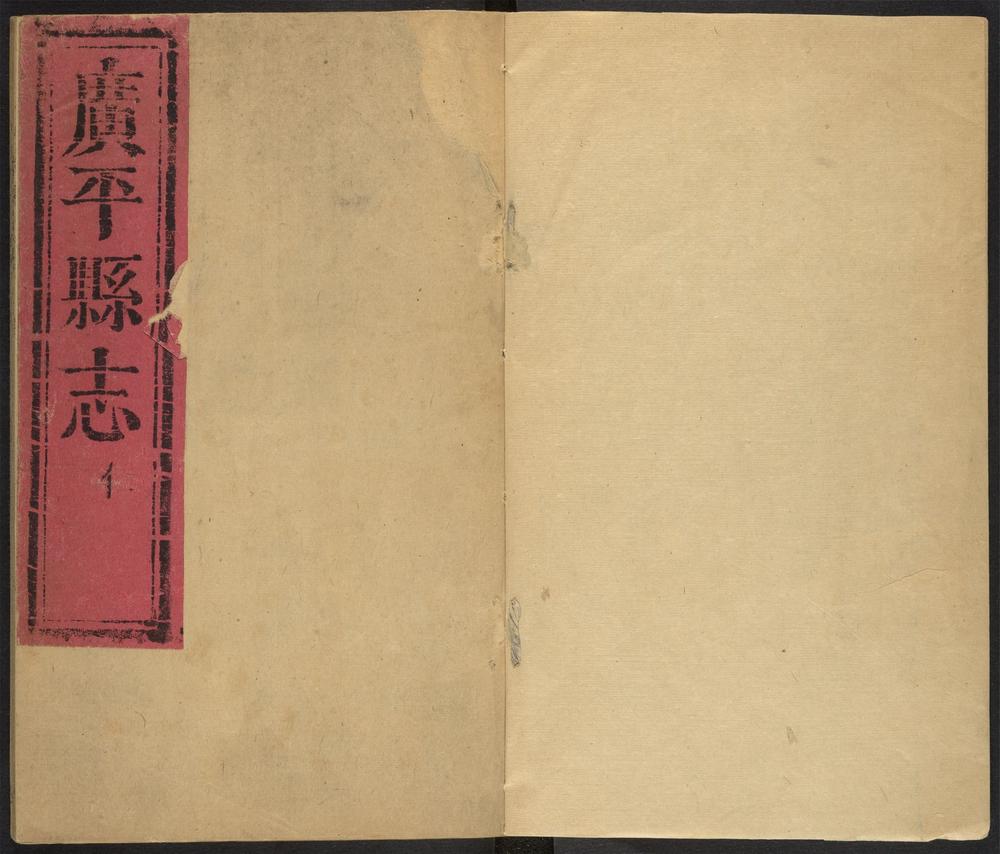 廣平縣志